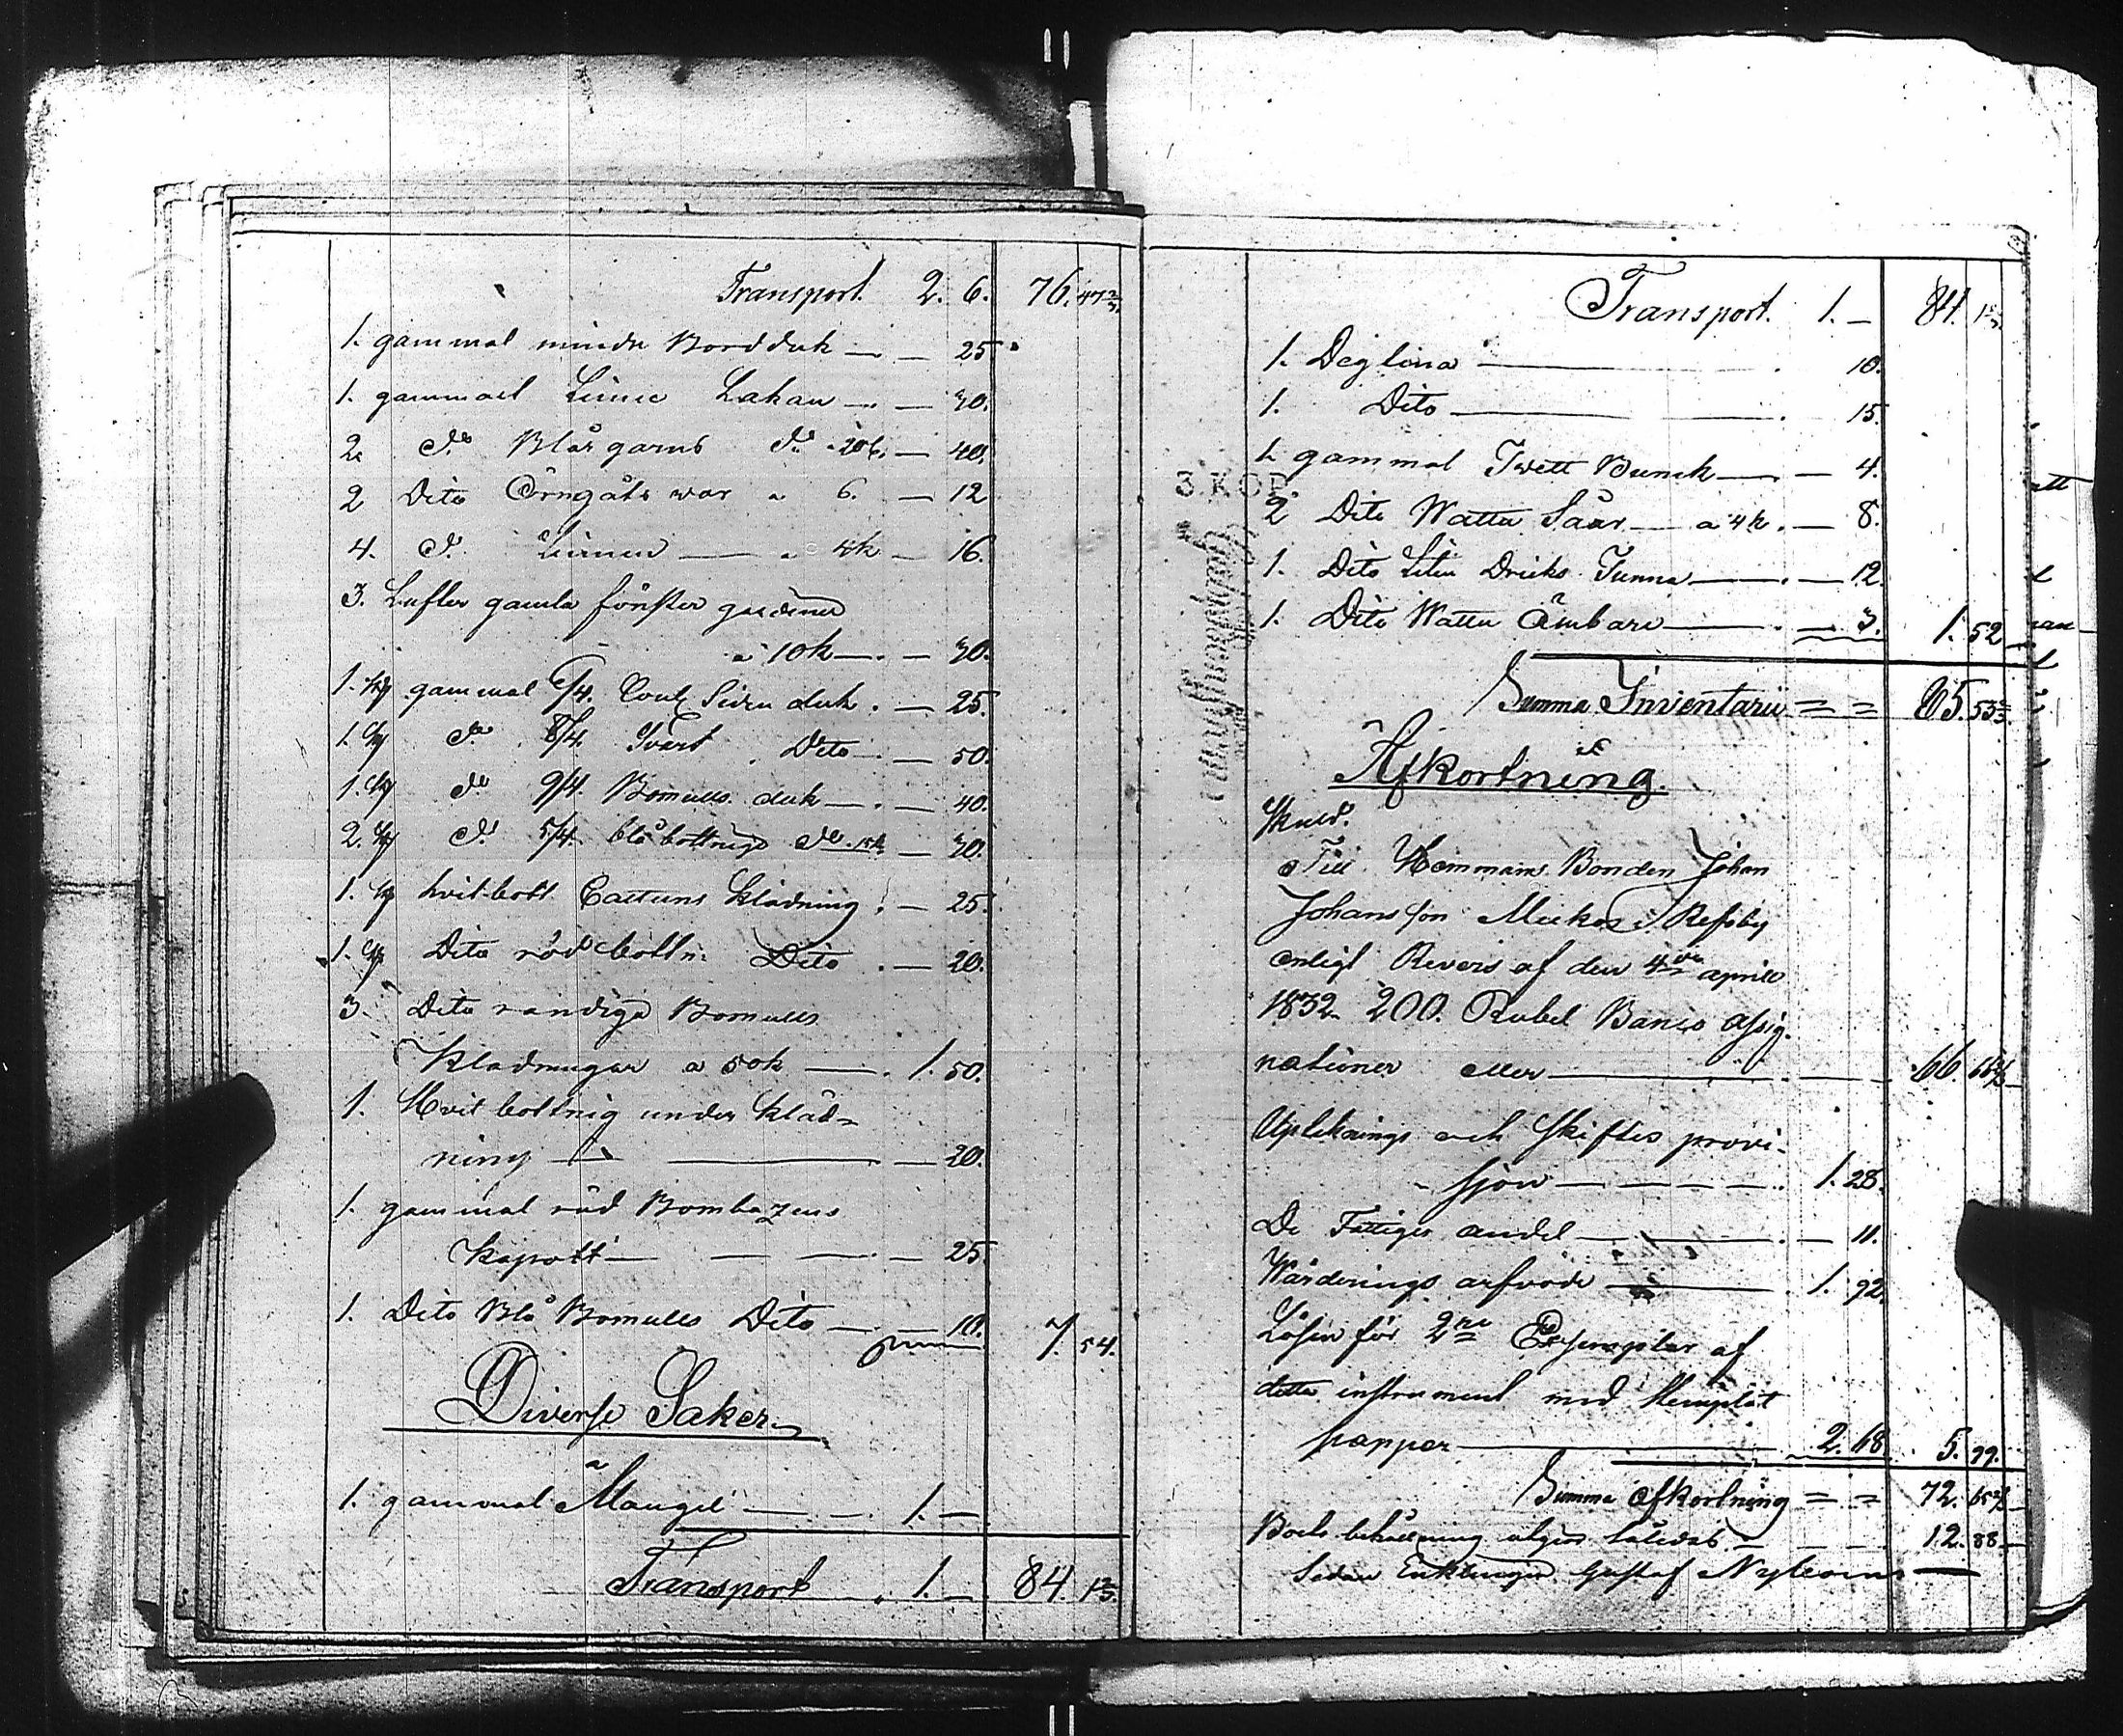 Transport. 2. 6. 76. 47 2/7.
1. gammal mindre Bordduk — — 25
1. gammalt Linne Lakan — — 30.
2 do Blårgarns do a 20 k. — 40.
2 Dito Örngåts war a 6. — 12
4. do Linne — a 4k — 16.
3. Lufter gamla fönster gardiner
a 10k — — 30.
1. st gammal 6/4. Coul Siden duk. — 25.
1. st do 8/4. Svart Dito — 50.
1. st do 9/4. Bomulls duk — — 40.
2. st do 5/4. blåbottnig do a 15k — 30.
1. st hvit bott Cattuns Klädning. — 25.
1. st Dito röd bottn. Dito. — 20.
3. Dito randiga Bomulls
Klädningar a 50k — 1. 50.
1. Hvit bottnig under kläd-
ning — — — 20.
1. gammal röd Bombazins
Kapott — — — 25.
1. Dito Blå Bomulls Dito — — 10. 7. 54.
Diverse Saker
1. gammal Mangel — — 1. —
Transport. 1. — 84. 1 2/7.
Transport. 1. — 84. 1 2/7.
1. Deglina — 10.
1. Dito — 15.
1. gammal Tvett Bunck — — 4.
2 Dito Wattu Såar — a 4k. — 8.
1. Dito Liten Dricks Tunna — — 12.
1. Dito Wattu Ämbare — — 3. 1. 52
Summa Inventarii = = 85. 53 2/7
Afkortning.
Skuld.
Till Hemmans Bonden Johan
Johansson Mickos i Refsby
enligt Revers af den 4de april
1832. 200. Rubel Banco Assig-
nationer eller — 66. 66 2/3
Upteknings och Skiftes provi-
sjon — — — — 1. 28.
De Fattiges andel — — 11.
Wärderings arfvode — 1. 92.
Lösen för 2ne Exsemplar af
detta instrument med Stemplat
papper — 2. 68 5. 99.
Summa Afkortning = = 72. 65 2/3
Boets behållning utgör således — — 12. 88.
Sedan Enklingen Gustaf —
3 KOP.